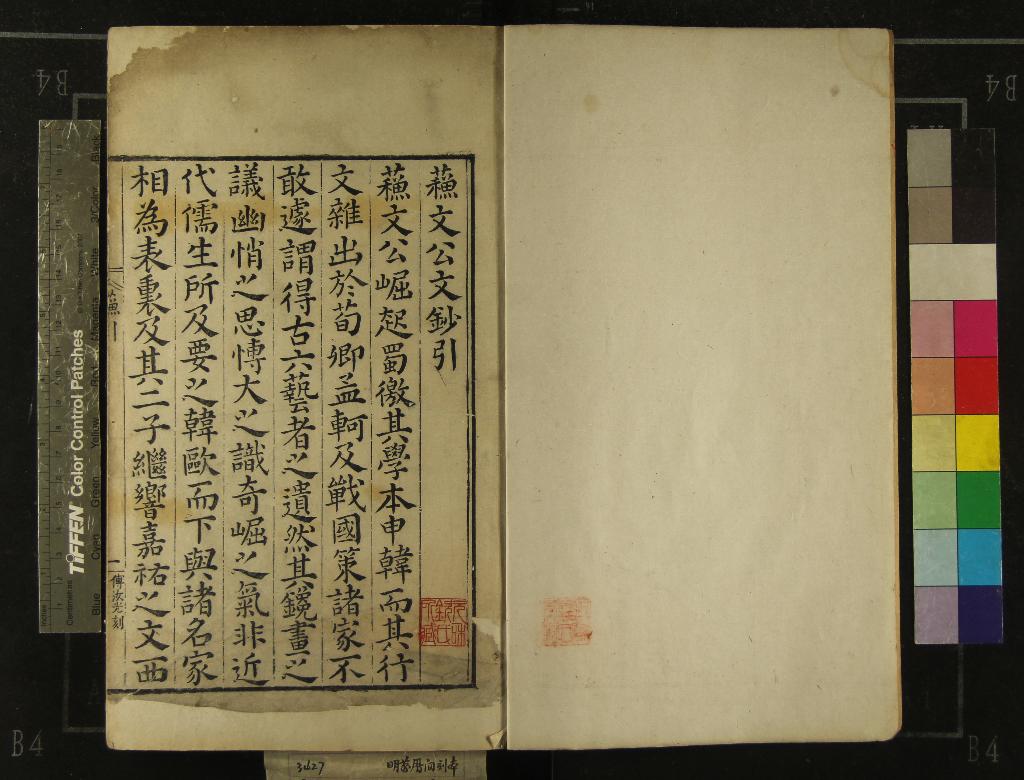 蘓文公文鈔引
蘓文公崛起蜀徼其學本申韓而其行
文雜出於荀卿孟軻及戰國策諸家不
敢遽謂得古六藝者之遺然其鑱畫之
議幽悄之思博大之識奇崛之氣非近
代儒生所及要之韓歐而下與諸名家
相為表裏及其二子繼響嘉祐之文西
蘓引
一
傅汝光刻
3427
明萬曆间刻本
TIFFEN Color Control Patches
Inches
Centimetres
Blue
Cyan
Green
Yellow
Red
Magenta
White
3/Color
Black
B4
B4
B4
B4